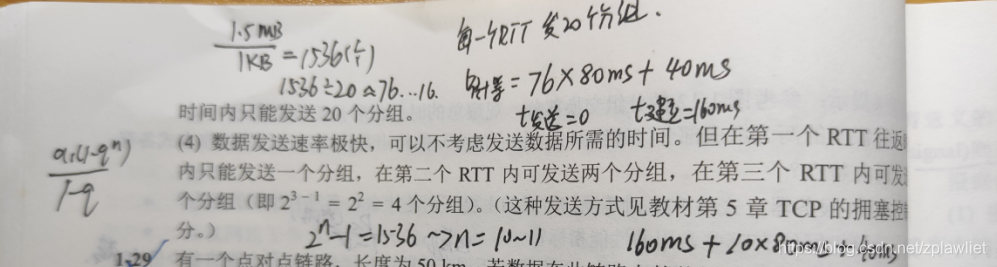 1.5MB
1KB = 1536(个)
每一个RTT 发20个分组.
1536÷20≈76...16
= 76×80ms + 40ms
时间内只能发送 20 个分组。
t发送=0
=160ms
a₁(1-qⁿ)
1-q
(4) 数据发送速率极快,可以不考虑发送数据所需的时间。但在第一个 RTT 往返
内只能发送一个分组,在第二个 RTT 内可发送两个分组,在第三个 RTT 内可发
个分组(即 2³⁻¹ = 2² = 4 个分组)。(这种发送方式见教材第 5 章 TCP 的拥塞控
分。)
2ⁿ-1=1536 ~> n=10~11
160ms + 10×80ms +40ms
https://blog.csdn.net/zplawliet
1-29 有一个点对点链路,长度为 50 km,若数据在此链路